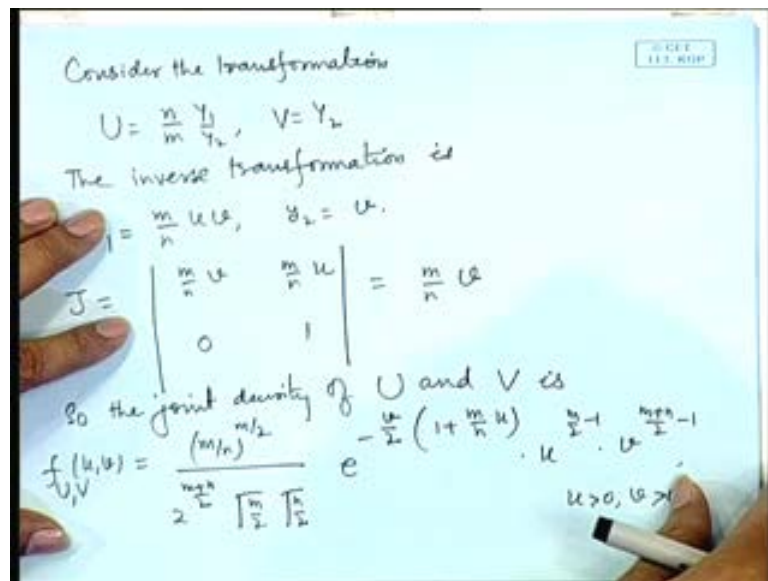 © CET
I.I.T. KGP
Consider the transformation
U = n/m Y₁/Y₂, V = Y₂
The inverse transformation is
₁ = m/n u v, y₂ = v.
J = | m/n v m/n u | = m/n v
| 0 1 |
So the joint density of U and V is
f_{U,V}(u,v) = (m/n)^{m/2} / (2^{(m+n)/2} Γ(m/2) Γ(n/2)) e^{-v/2 (1 + m/n u)} · u^{m/2 - 1} · v^{(m+n)/2 - 1},
u>0, v>